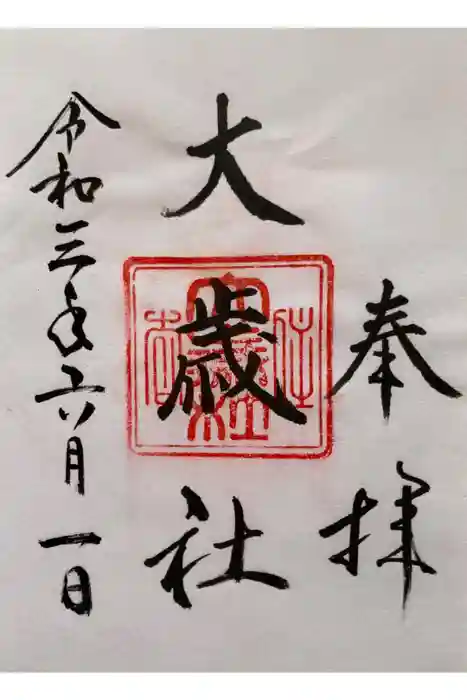 奉拝
大歳社
令和三年六月一日